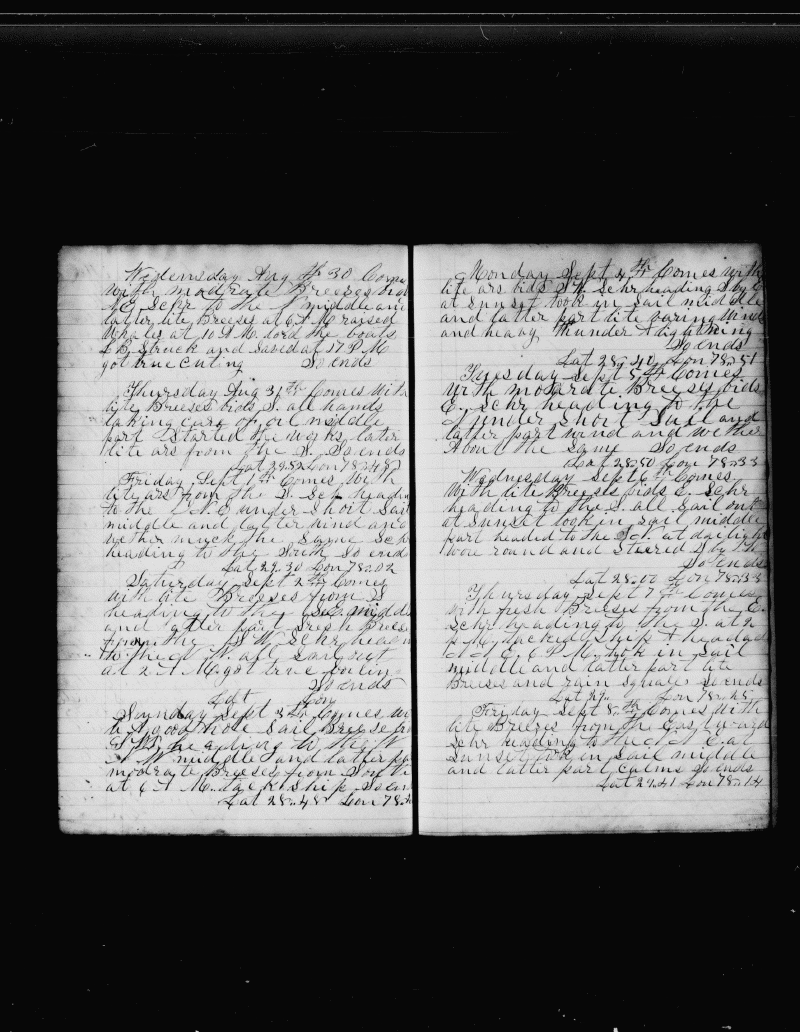 Wednesday Aug th 30 Comes
with modrate Breeses bids
N E Schr to the middle and
latter lite Breeses at 6 A M raised
Whales at 10 A M lord the boats
L B Struck and saved at 17 P M
got true cuting So ends
Thursday Aug 31th Comes with
lite Breeses bids S. all hands
taking care of oil middle
part Started the works later
lite ars from the S. So ends
Lat 29.52 Lon 78.48
Friday Sept 1th Comes with
lite ars from the S. Sch heading
to the under Short Sail
middle and latter wind and
wether much the Same Sch
heading to the South So ends
Lat 29.30 Lon 78.02
Saturday Sept 2th Comes
with lite Breeses from S
heading to the middle
and latter part fresh Breeses
from the S W Schr heading
to the W. all Sail out
at 2 A M got true
So ends
Lat Lon
Sunday Sept 3th Comes with
good hole Sail Breese
heading to the W
N W middle and latter part
modrate Breeses from South
at 6 A M. tack ship So ends
Lat 28.48 Lon 78.
Monday Sept 4th Comes with
lite ars bids S W Schr heading S by E
at Sunset took in Sail middle
and latter part lite varing wind
and heavy Thunder & lightning
So ends
Lat 28.40 Lon 78.51
Tuesday Sept 5th Comes
with moderate Breeses bids
E. Schr heading to the
S under Short Sail and
latter part wind and wether
About the Same So ends
Lat 28.50 Lon 78.33
Wednesday Sept 6th Comes
with lite Breeses bids E. Schr
heading to the S. all Sail out
at Sunset took in Sail middle
part headed to the at daylight
wore round and Steared S by W
So ends
Lat 28.00 Lon 78.33
Thursday Sept 7th Comes
with fresh Breeses from the E.
Schr heading to the S. at 2
P M. tacked Ship & headed
N N E. 6 P M. took in Sail
middle and latter part lite
Breeses and rain squales So ends
Lat 29. Lon 78.25
Friday Sept 8th Comes with
lite Breeses from the Eastward
Schr heading to the N E. at
Sunset took in Sail middle
and latter part calms So ends
Lat 29.41 Lon 78.14